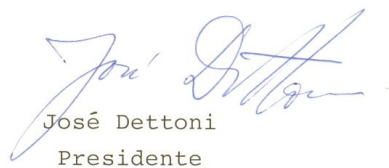 José Dettoni
José Dettoni
Presidente